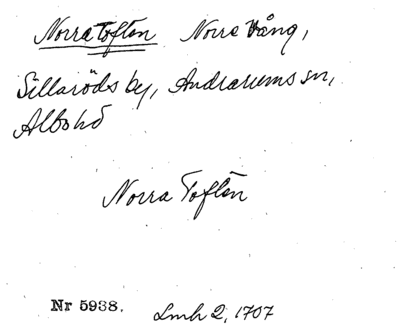 Norra Toften Norra Vång,
Sillaröds by, Andrarums sn,
Albo hd
Norra Toften
Nr 5938. Lmh 2, 1707